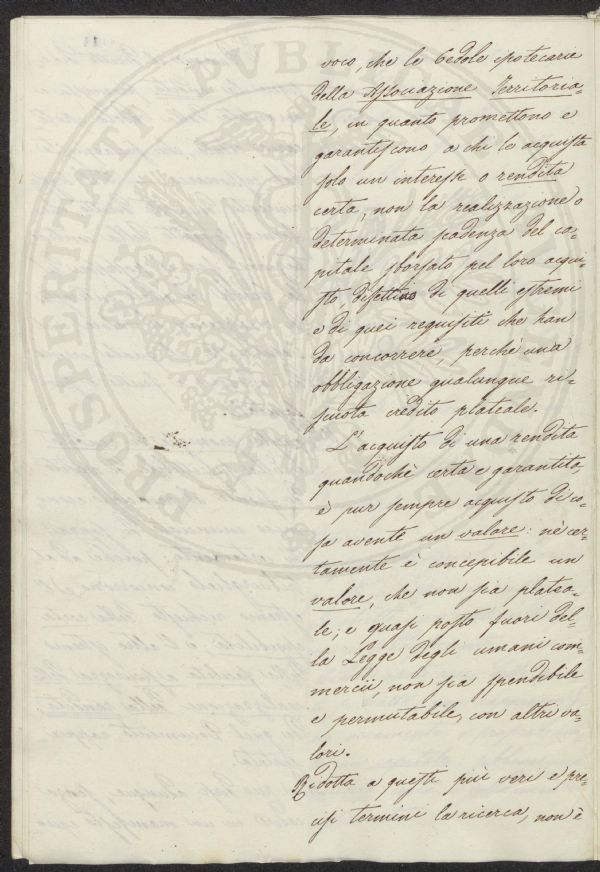 voco, che le Cedole ipotecarie
della Associazione Territoria-
le, in quanto promettono e
garantiscono a chi le acquista
solo un interesse o rendita
certa, non la realizzazione o
determinata scadenza del ca-
pitale sborsato pel loro acqui-
sto, difettino di quelli estremi
e di quei requisiti che han
da concorrere, perchè una
obbligazione qualunque ri-
scuota credito plateale.
L'acquisto di una rendita
quandochè certa e garantita,
è pur sempre acquisto di co-
sa avente un valore: nè cer-
tamente è concepibile un
valore, che non sia platea-
le; e quasi posto fuori del-
la Legge degli umani com-
mercii, non sia spendibile
e permutabile, con altri va-
lori.
Ridotta a questi più veri e pre-
cisi termini la ricerca, non è
PROSPERITATI PVBLICAE